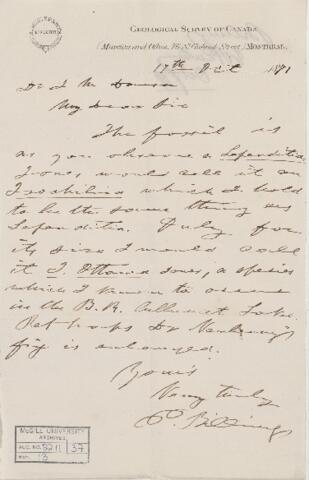 GEOLOGICAL SURVEY OF CANADA
(Museum and Office, 76 St. Gabriel Street) MONTREAL
17th Oct 1871
Dr J W Dawson
My dear Sir
The fossil is
as you observe a Leperditia
Jones would call it an
Isochilina which I hold
to be the same thing as
Leperditia. Only for
its size I would call
it I. Ottawa Jones, a species
which I know to occur
in the B.R. Calumet
Perhaps Dr
fig is enlarged.
Yours
Very truly
E. Billings
McGILL UNIVERSITY
ARCHIVES
ACC. NO. 2211 37
REF. 13